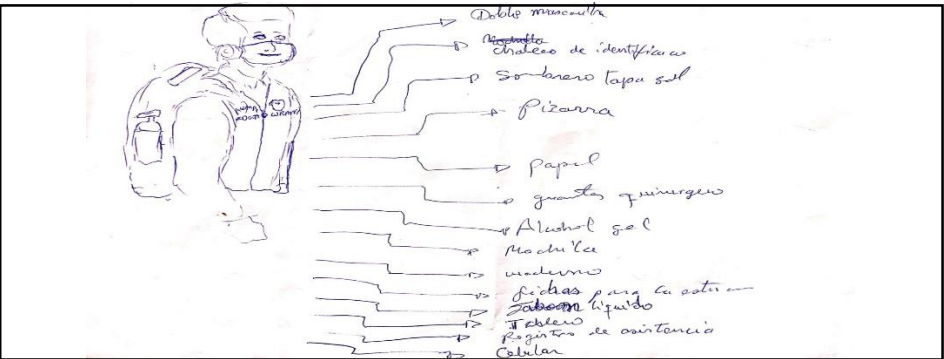 Doble mascarilla
chaleco de identificacio
Sombrero tapa sol
Pizarra
papel
guantes quirurgero
Alcohol gel
Mochila
fichas para la
Jaboon liquido
Tablero
Registros de asistencia
Celular